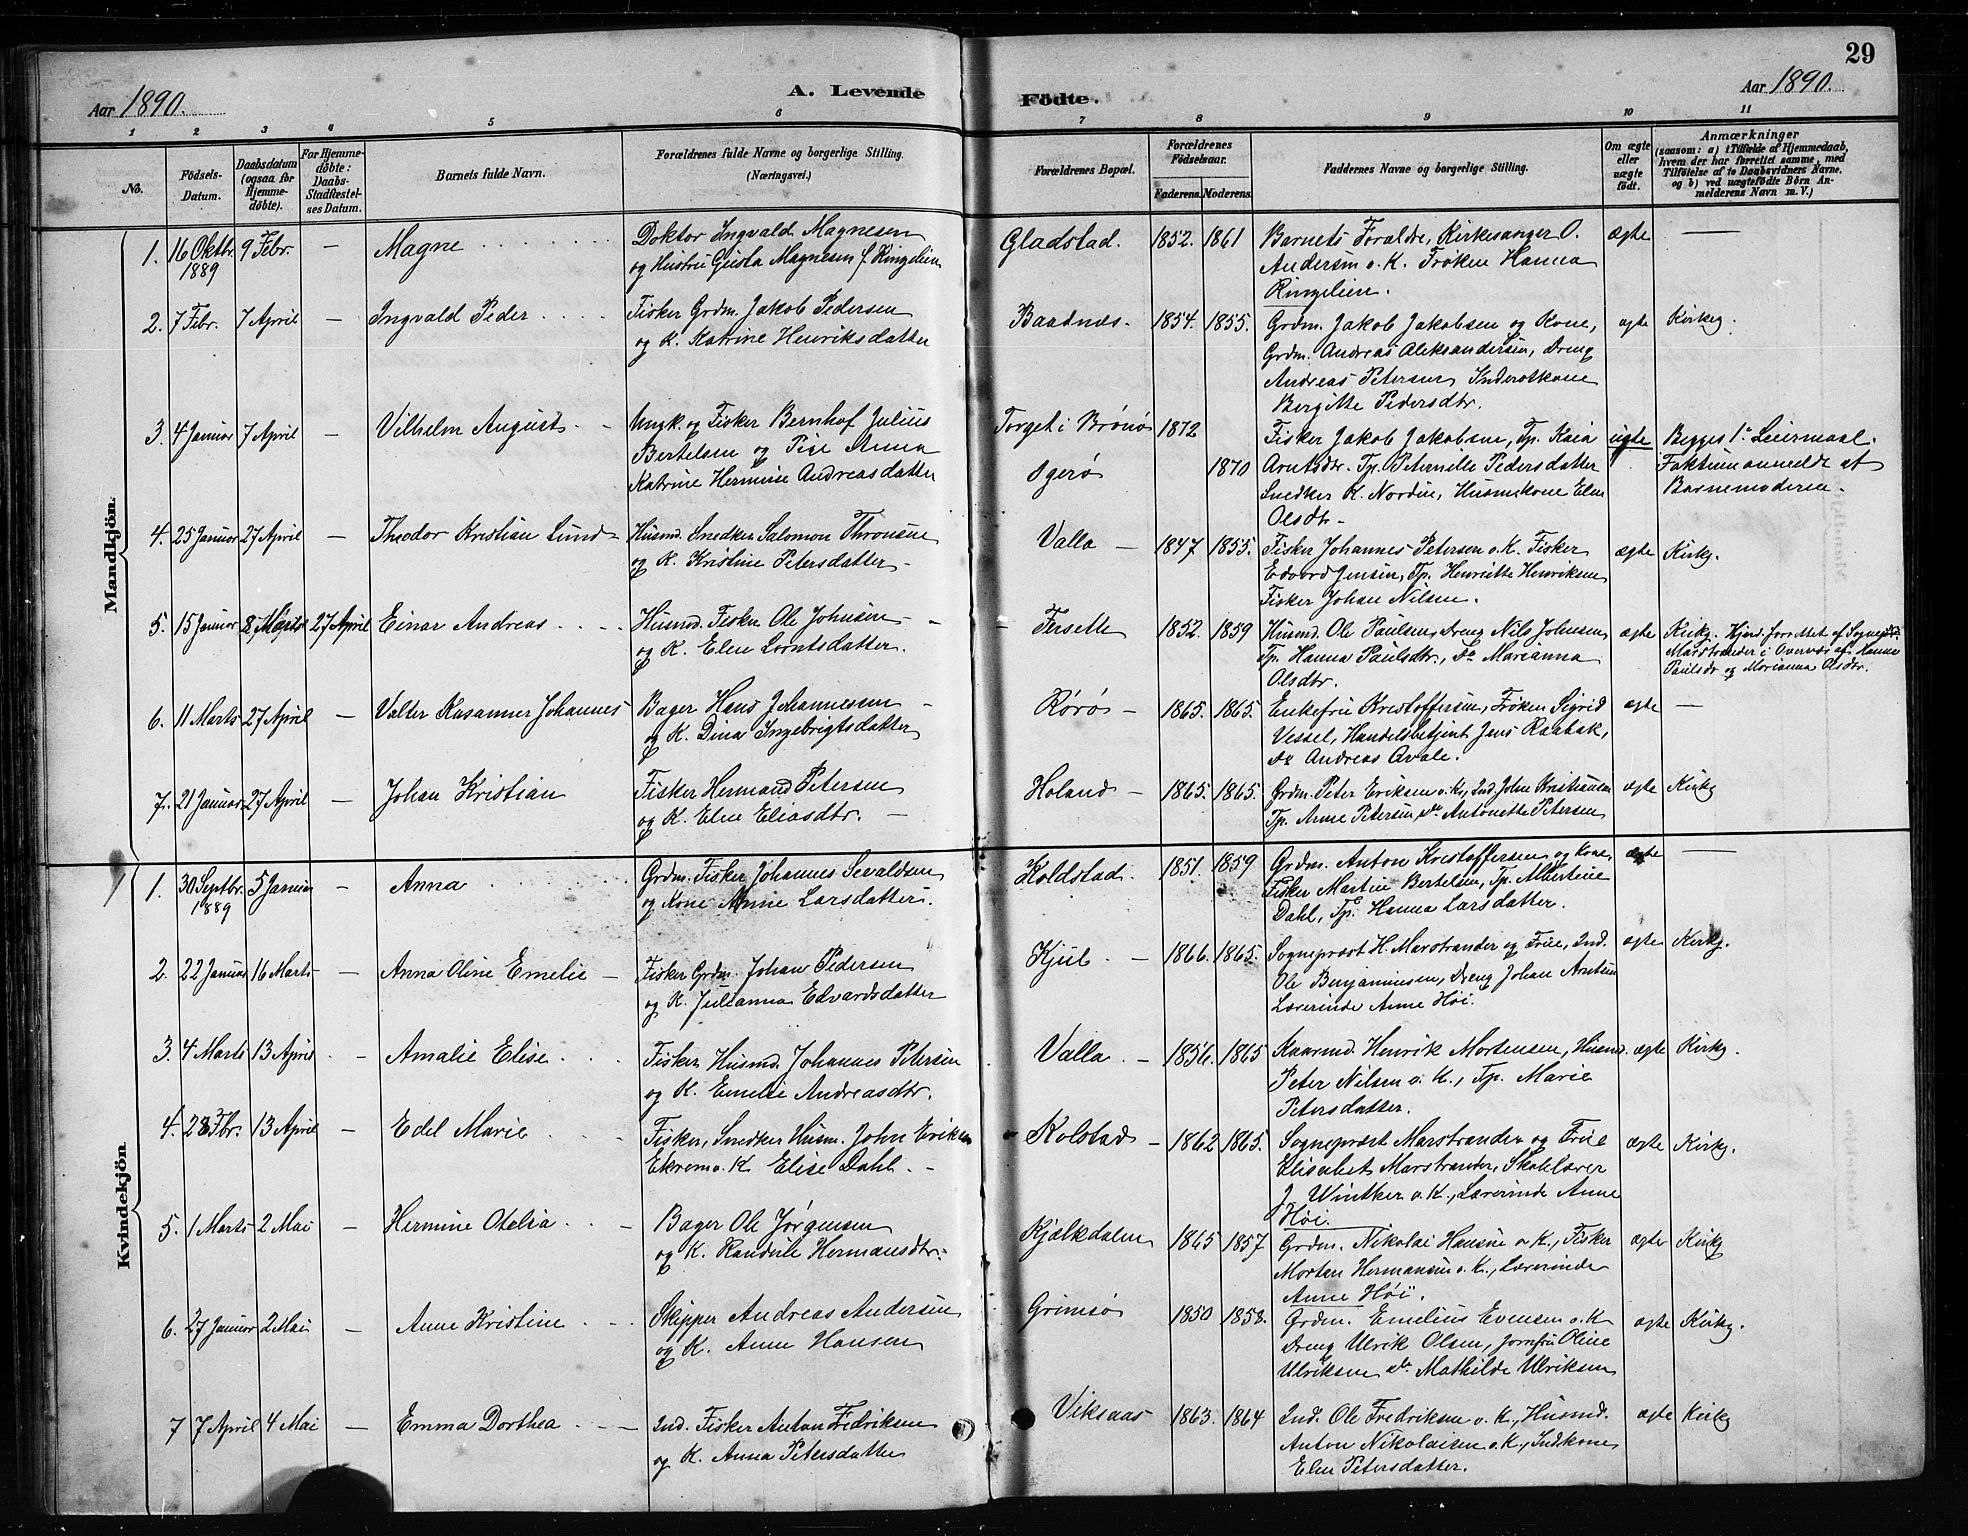 29
Aar 1890.
A. Levende Födte.
Aar 1890.
1 2 3 4 5 6 7 8 9 10 11
No.
Födsels-Datum.
Daabsdatum (ogsaa for Hjemme-döbte).
For Hjemme-döbte: Daabs-Stadfæstel-ses Datum.
Barnets fulde Navn.
Forældrenes fulde Navne og borgerlige Stilling. (Næringsvei.)
Forældrenes Bopæl.
Forældrenes Födselsaar.
Faderens. Moderens.
Faddernes Navne og borgerlige Stilling.
Om ægte eller uægte födt.
Anmærkninger
(saasom: a) i Tilfælde af Hjemmedaab,
hvem der har forrettet samme, med
Tilföielse af to Daabsvidners Navne,
og b) ved uægtefödte Börn An-
melderens Navn m. V.)
Mandkjön.
1. 16 Oktbr. 1889 9 Febr. — Magne
Doktor Ingvald Magnesen
og Hustru Gusta Magnesen f. Ringelien
Gladstad. 1852. 1861
Barnets Forældre, Kirkesanger O.
Andersen o. K. Frøken Hanna
Ringelien.
ægte —
2. 7 Febr. 7 April — Ingvald Peder
Fisker Grdm. Jakob Pedersen
og K. Katrine Henriksdatter
Baadnæs. 1854. 1855.
Grdm. Jakob Jakobsen og Kone,
Grdm. Andreas Aleksandersen, Dreng
Andreas Petersen, Inderstkone
Bergitte Pedersdtr.
ægte Kirkeg.
3. 4 Januar 7 April — Vilhelm August
Ungk. og Fisker Bernhof Julius
Bertelsen og Pige Anna
Katrine Hermine Andreasdatter
Torget i Brønø 1872
Ogerø 1870
Fisker Jakob Jakobsen, Tp. Kaia
Arntsdtr. Tp. Peternille Pedersdatter
Snedker K. Nordin, Husmskone Elen
Olsdtr —
uægte
Begges 1ste Leiermaal.
Faktum anmeldt af
Barnemoderen.
4. 25 Januar 27 April — Theodor Kristian Lund
Husmd. Snedker Salomon Thronsen
og K. Kristine Petersdatter —
Valla — 1847 1855.
Fisker Johannes Petersen o. K. Fisker
Edvard Jensen, Tp. Henriette Henriksen
Fisker Johan Nilsen.
ægte Kirkg.
5. 15 Januar 8 Marts 27 April Einar Andreas
Husmd. Fisker Ole Johnsen —
og K. Elen Lorntsdatter.
Tersette 1852. 1859
Husmd. Ole Paulsen, Dreng Nils Johnsen,
Tp. Hanna Paulsdtr., Do Marianna
Olsdtr.
ægte
Kirkg. Hjmd. forrettet af Sognepr.
Marstrander i Overvær af Hanna
Paulsdr og Marianna Olsdtr.
6. 11 Marts 27 April — Valter Kasanner Johannes
Bager Hans Johannessen —
og K. Dina Ingebrigtsdatter
Rørø — 1865. 1865.
Enkefru Kristoffersen, Frøken Sigrid
Vessel, Handelsbetjent Jens Raabak,
Do Andreas Qvale.
ægte —
7. 21 Januar 27 April — Johan Kristian
Fisker Hermand Petersen
og K. Elen Eliasdtr. —
Holand — 1865. 1865.
Grdm. Peter Eriksen o. K., Ind. John Kristiansen
Tp. Anne Petersen, Do Antonette Petersen
ægte Kirkg
Kvindekjön.
1. 30 Septbr. 1889 5 Januar — Anna
Grdm. Fisker Johannes Sevaldsen
og Kone Anne Larsdatter.
Koldstad. 1851. 1859
Grdm. Anton Kristoffersen og Kone,
Fisker Martin Bertelsen, Tp. Albertine
Dahl, Tp. Hanna Larsdatter.
ægte —
2. 22 Januar 16 Marts — Anna Oline Emelie —
Fisker Grdm. Johan Pedersen
og K. Julianna Edvardsdatter
Kjul — 1866. 1865.
Sognepræst H. Marstrander og Frue, Ind.
Ole Benjaminsen, Dreng Johan Arntsen
Lærerinde Anne Høi.
ægte Kirkg.
3. 4 Marts 13 April — Amalie Elise
Fisker Husmd. Johannes Petersen
og K. Emelie Andreasdtr.
Valla — 1856. 1865
Kaarmd. Henrik Mortensen, Husmd.
Peter Nilsen o. K., Tp. Marie
Petersdatter.
ægte Kirkg.
4. 28 Fbr. 13 April — Edel Marie
Fisker, Snedker Husm. John Eriksen
Ekrem o. K Elise Dahl. —
Kolstad — 1862 1865.
Sogneprest Marstrander og Frue
Elisabet Marstrander, Skolelærer
J. Wintker o. K., Lærerinde Anne
Høi.
ægte Kirkg.
5. 1 Marts 2 Mai — Hermine Otelia
Bager Ole Jørgensen
og K. Randule Hermansdtr.
Kjælkdalen 1865 1857
Grdm. Nikolai Hansen o. K., Fisker
Morten Hermansen o. K., Lærerinde
Anne Høi.
ægte Kirkg
6. 27 Januar 2 Mai — Anne Kristine
Skipper Andreas Andersen
og K. Anne Hansen
Grimsø 1850 1858.
Grdm. Emelius Evensen o. K
Dreng Ulrik Olsen, Jomfru Oline
Ulriksen Do Mathilde Ulriksen
ægte Kirkg.
7 7 April 4 Mai — Emma Dorthea
Ind. Fisker Anton Fredriksen
og K. Anna Petersdatter
Viksaas 1863. 1864
Ind. Ole Fredriksen o. K., Husmd.
Anton Nikolaisen o. K., Indkone
Elen Petersdatter.
ægte Kirkg